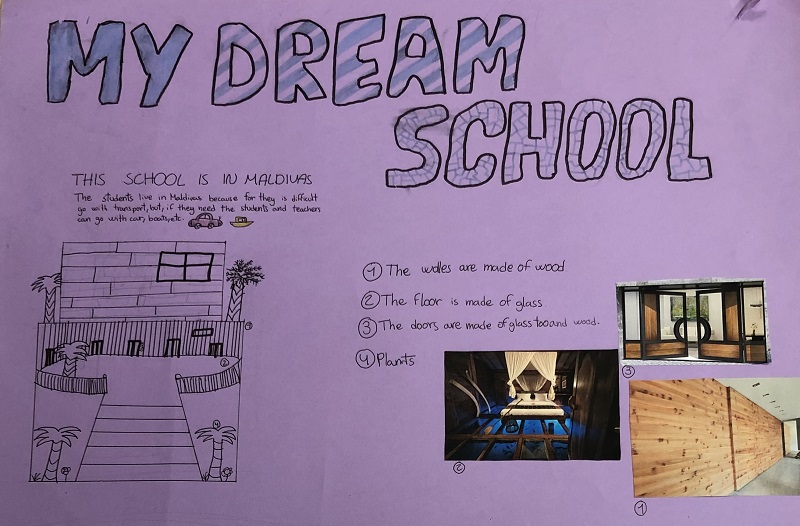 MY DREAM
SCHOOL
THIS SCHOOL IS IN MALDIVAS
The students live in Maldivas because for they is difficult
go with transport, but, if they need the students and teachers
can go with car, boats, etc.
1 The walles are made of wood
2 The floor is made of glass
3 The doors are made of glass too and wood.
4 Plants
1
2
4
3
2
1